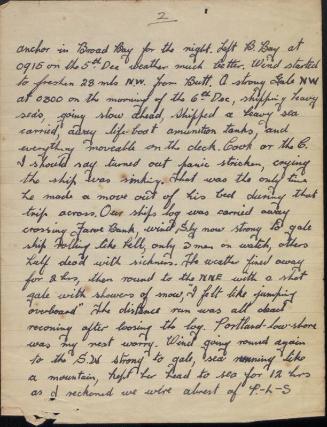 2
anchor in Broad Bay for the night. Left B. Bay at
0915 on the 5th Dec weather much better. Wind started
to freshen 28 mls N.W. from Butt. A strong Gale NW
at 0300 on the morning of the 6th Dec, shipping heavy
seas, going slow ahead, shipped a heavy sea
carried away life-boat amunition tanks, and
everything moveable on the deck. Cook or the C.
I should say turned out panic stricken, crying
the ship was sinking. That was the only time
he made a move out of his bed during that
trip across. Our ships log was carried away
crossing Faroe Bank, wind Sly now strong to gale
ship rolling like hell, only 3 men on watch, others
half dead with sickness. The weather fined away
for 2 hrs, then round to the NNE with a
gale with showers of snow, I felt like jumping
overboard. The distance run was all dead
reconing after loosing the log. Portland-low-shore
was my next worry. Wind going round again
to the S.W strong to gale, sea running like
a mountain, kept her head to sea for 12 hrs
as I reckoned we were abrest of P-L-S